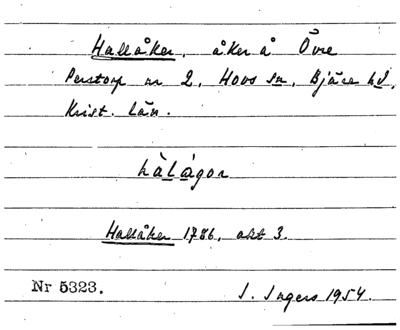 Hallåker, åker å Övre
Perstorp nr 2, Hovs sn, Bjäre hd,
Krist. län.
hàlågor
Hallåker 1786, akt 3.
Nr 5323.
I. Ingers 1954.